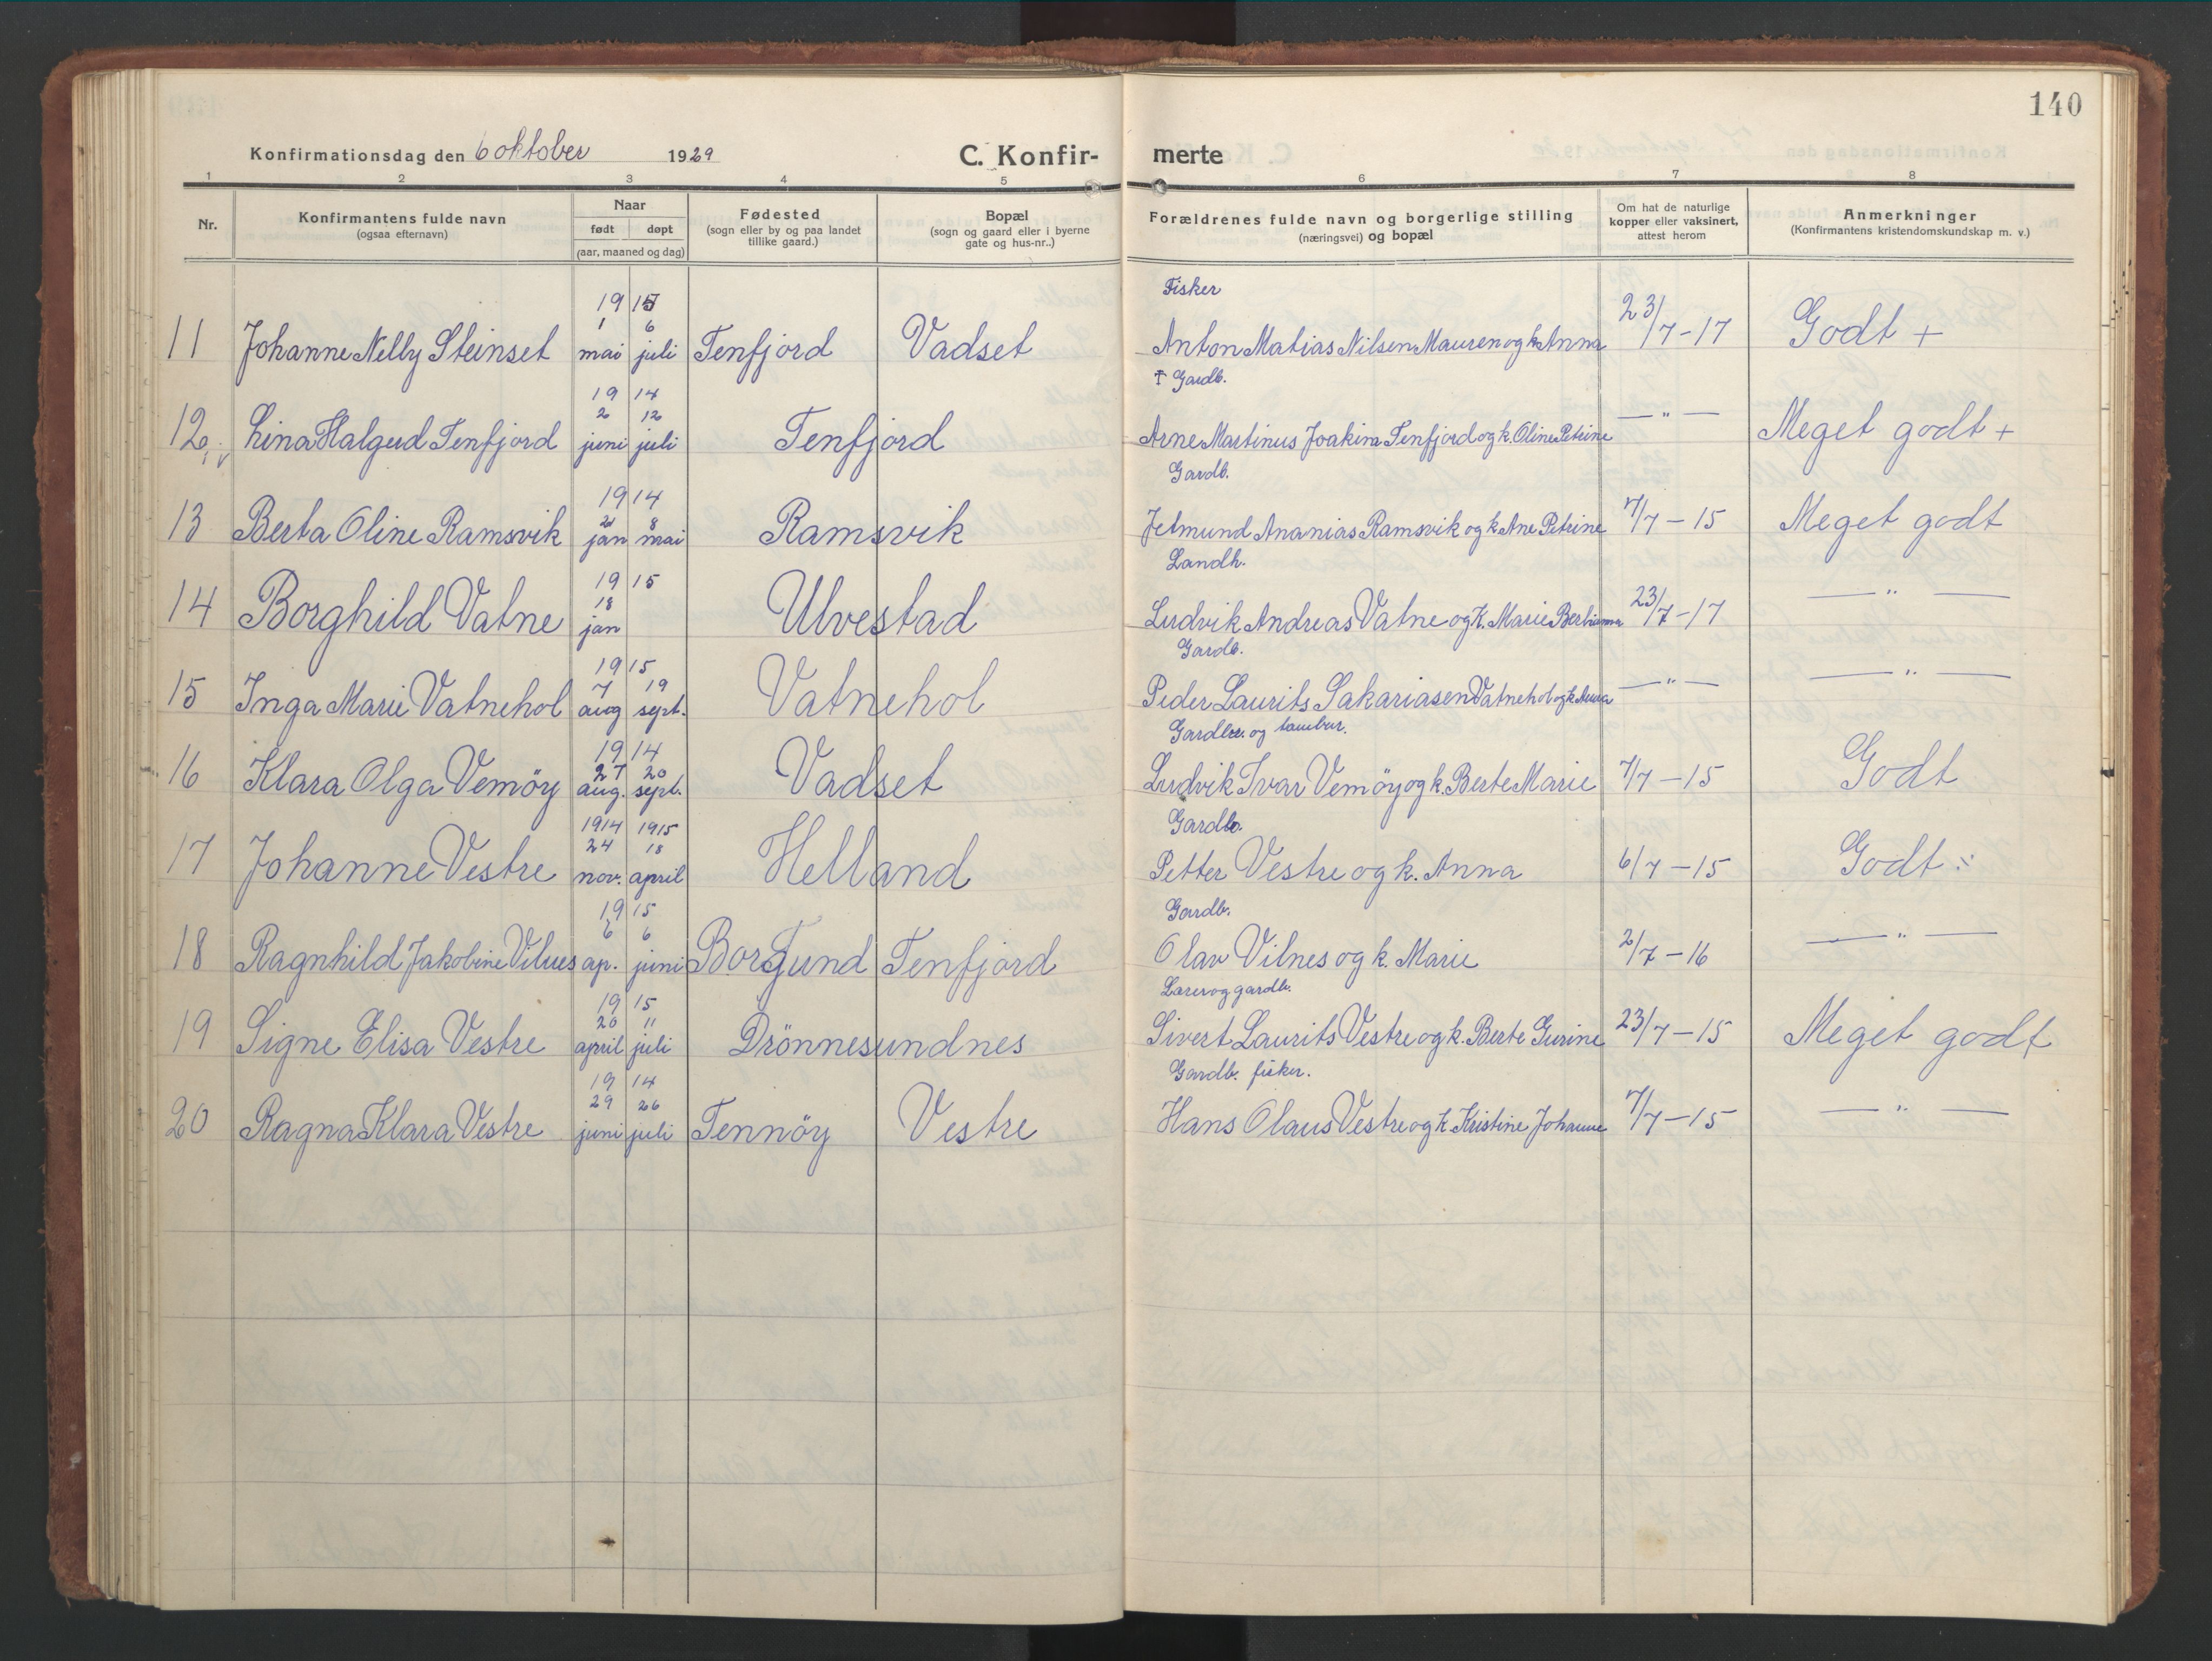 140
Konfirmationsdag den 6 oktober 1929
C. Konfir-
merte
1 2 3 4 5 6 7 8
Nr.
Konfirmantens fulde navn
(ogsaa efternavn)
Naar
født døpt
(aar, maaned og dag)
Fødested
(sogn eller by og paa landet
tillike gaard.)
Bopæl
(sogn og gaard eller i byerne
gate og hus-nr..)
Forældrenes fulde navn og borgerlige stilling
(næringsvei) og bopæl
Om hat de naturlige
kopper eller vaksinert,
attest herom
Anmerkninger
(Konfirmantens kristendomskundskap m. v.)
19 15 Fisker
1 6
11 Johanne Nelly Steinset mai juli Tenfjord Vadset Anton Matias Nilsen Mauren og k. Anna 23/7-17 Godt +
19 14 † Gardb.
2 12
12 Lina Halgerd Tenfjord juni juli Tenfjord Arne Martinus Joakim Tenfjord og k. Oline Petrine — " — Meget godt +
19 14 Gardb.
8
13 Berta Oline Ramsvik jan mai Ramsvik Jetmund Ananias Ramsvik og k. Ane Petrine 7/7-15 Meget godt
19 15 Landh.
18
14 Borghild Vatne jan Ulvestad Ludvik Andreas Vatne og k. Marie 23/7-17 — " —
19 15 Gardb.
7 19
15 Inga Marie Vatnehol aug sept. Vatnehol Peder Laurits Sakariasen Vatnehol og k. — " — — " —
19 14 Gardbr. og
27 20
16 Klara Olga Vemöy aug. sept. Vadset Ludvik Ivar Vemöy og k. Berte Marie 7/7-15 Godt
1914 1915 Gardb.
24 18
17 Johanne Vestre nov. april Helland Petter Vestre og k. Anna 6/7-15 Godt ÷
19 15 Gardb.
6 6
18 Ragnhild Jakobine Vilnes ap. juni Borgund Tenfjord Olav Vilnes og k. Marie 2/7-16 — " —
19 15 Lærer og gardb.
20 11
19 Signe Elisa Vestre april juli Drönnesundnes Sivert Laurits Vestre og k. Berte Gurine 23/7-15 Meget godt
19 14 Gardb. fisker.
29 26
20 Ragna Klara Vestre juni juli Tennöy Vestre Hans Olaus Vestre og k. Kristine Johanne 7/7-15 — " —